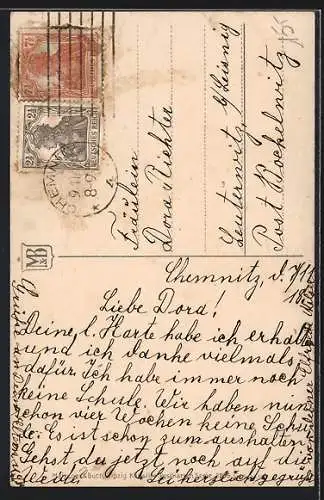 7½
2½ 2½
DEUTSCHES REICH
CHEMNITZ
8-9
Fräulein
Dora Richter
Leuternitz b/Leisnig
Post Bockelwitz
MB&B
Chemnitz, d. 7/10
Liebe Dora!
Deine l. Karte habe ich erhalten
und ich danke vielmals
dafür. Ich habe immer noch
keine Schule. Wir haben nun
schon vier Wochen keine Schu-
le. Es ist schon zum aushalten.
Gehst du jetzt noch auf die
Weide. Sei herzlich gegrüßt
von
Grüße von